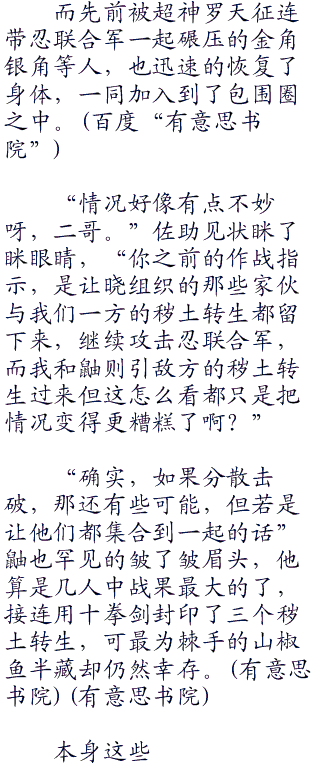 而先前被超神罗天征连
带忍联合军一起碾压的金角
银角等人，也迅速的恢复了
身体，一同加入到了包围圈
之中。(百度“有意思书
院”)
“情况好像有点不妙
呀，二哥。”佐助见状眯了
眯眼睛，“你之前的作战指
示，是让晓组织的那些家伙
与我们一方的秽土转生都留
下来，继续攻击忍联合军，
而我和鼬则引敌方的秽土转
生过来但这怎么看都只是把
情况变得更糟糕了啊？”
“确实，如果分散击
破，那还有些可能，但若是
让他们都集合到一起的话”
鼬也罕见的皱了皱眉头，他
算是几人中战果最大的了，
接连用十拳剑封印了三个秽
土转生，可最为棘手的山椒
鱼半藏却仍然幸存。(有意思
书院)(有意思书院)
本身这些